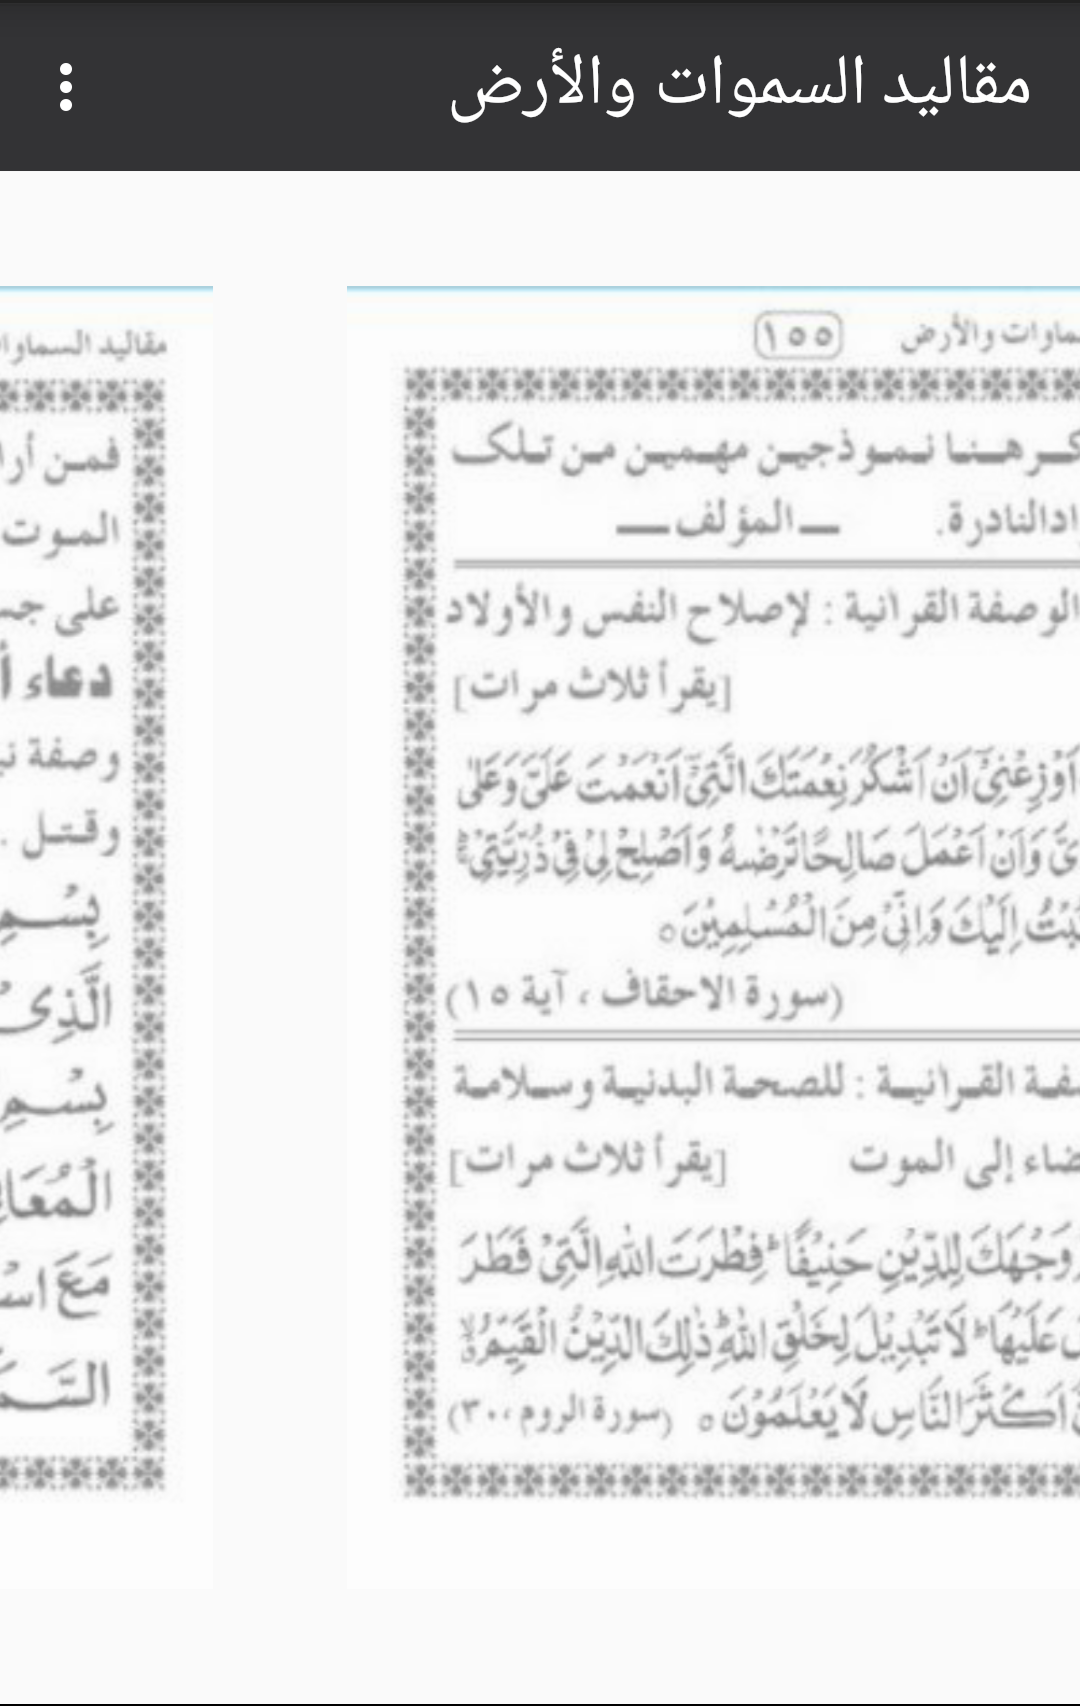 مقاليد السموات والأرض
ماوات والأرض ١٥٥
كر هنا نموذجين مهمين من تلك
ادالنادرة. ــ المؤلف ــ
الوصفة القرانية : لإصلاح النفس والأولاد
[يقرأ ثلاث مرات]
اَوْزِعْنِيْٓ اَنْ اَشْكُرَ نِعْمَتَكَ الَّتِيْٓ اَنْعَمْتَ عَلَيَّ وَعَلٰى
يَّ وَاَنْ اَعْمَلَ صَالِحًا تَرْضٰىهُ وَاَصْلِحْ لِيْ فِيْ ذُرِّيَّتِيْ
تُبْتُ اِلَيْكَ وَاِنِّيْ مِنَ الْمُسْلِمِيْنَ ○
(سورة الاحقاف ، آية ١٥)
صفة القرانية : للصحة البدنية وسلامة
ضاء إلى الموت [يقرأ ثلاث مرات]
وَجْهَكَ لِلدِّيْنِ حَنِيْفًا ؕ فِطْرَتَ اللّٰهِ الَّتِيْ فَطَرَ
عَلَيْهَا ؕ لَا تَبْدِيْلَ لِخَلْقِ اللّٰهِ ؕ ذٰلِكَ الدِّيْنُ الْقَيِّمُ ۙ
اَكْثَرَ النَّاسِ لَا يَعْلَمُوْنَ ○ (سورة الروم ،٣٠)
مقاليد السماوا
فمن أرا
الموت
على جس
دعاء أ
وصفة نب
وقتل .
بِسْمِ
الَّذِى
بِسْمِ
الْمُعَا
مَعَ اسْ
السَّمَ